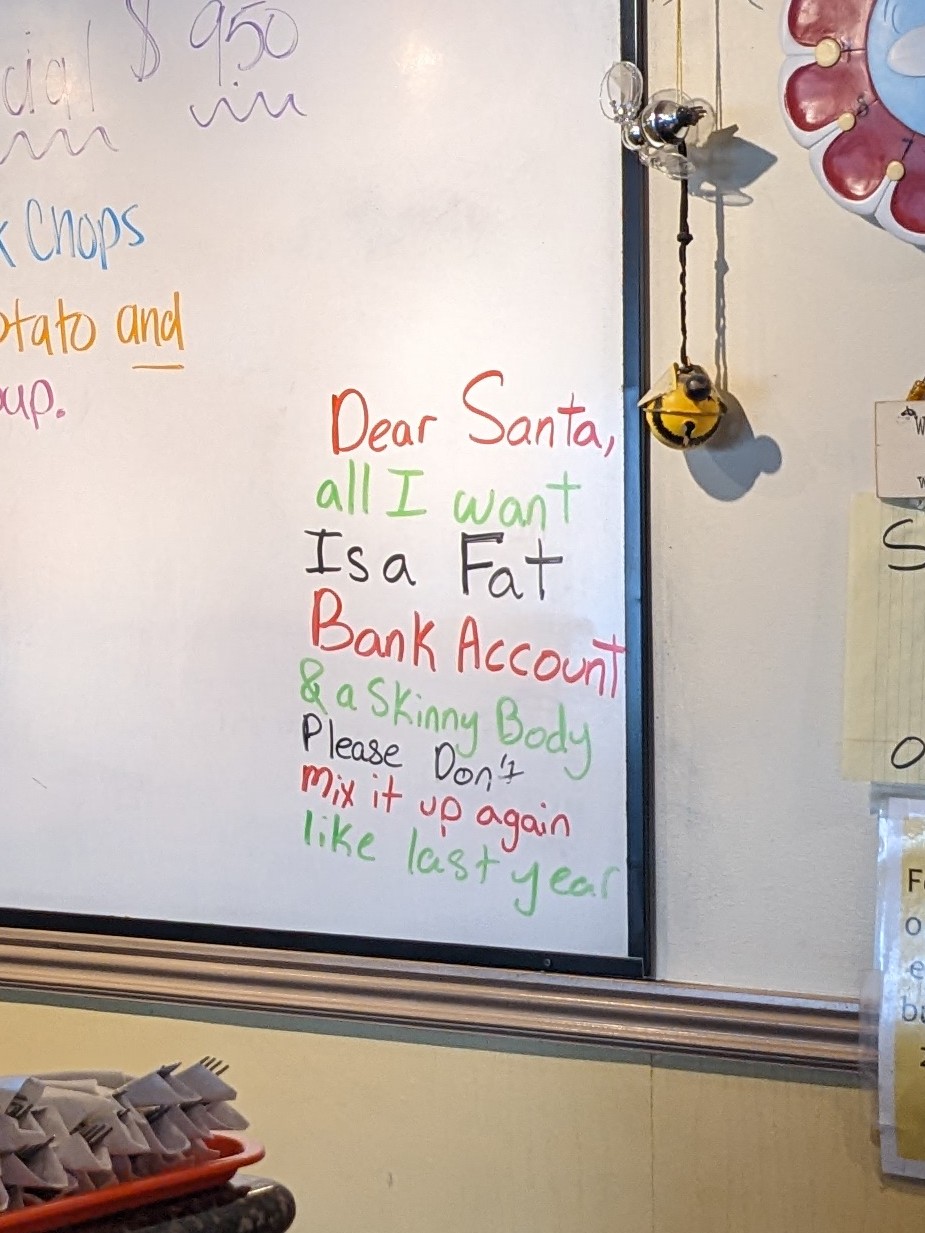 $ 950
Chops
and
Dear Santa,
all I want
Is a Fat
Bank Account
& a Skinny Body
Please Don't
Mix it up again
like last year
7